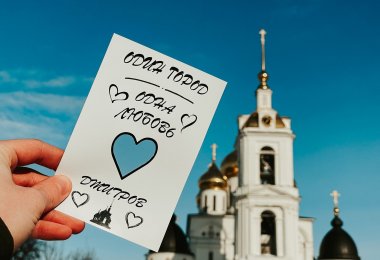 ОДИН ГОРОД
ОДНА
ЛЮБОВЬ
ДМИТРОВ